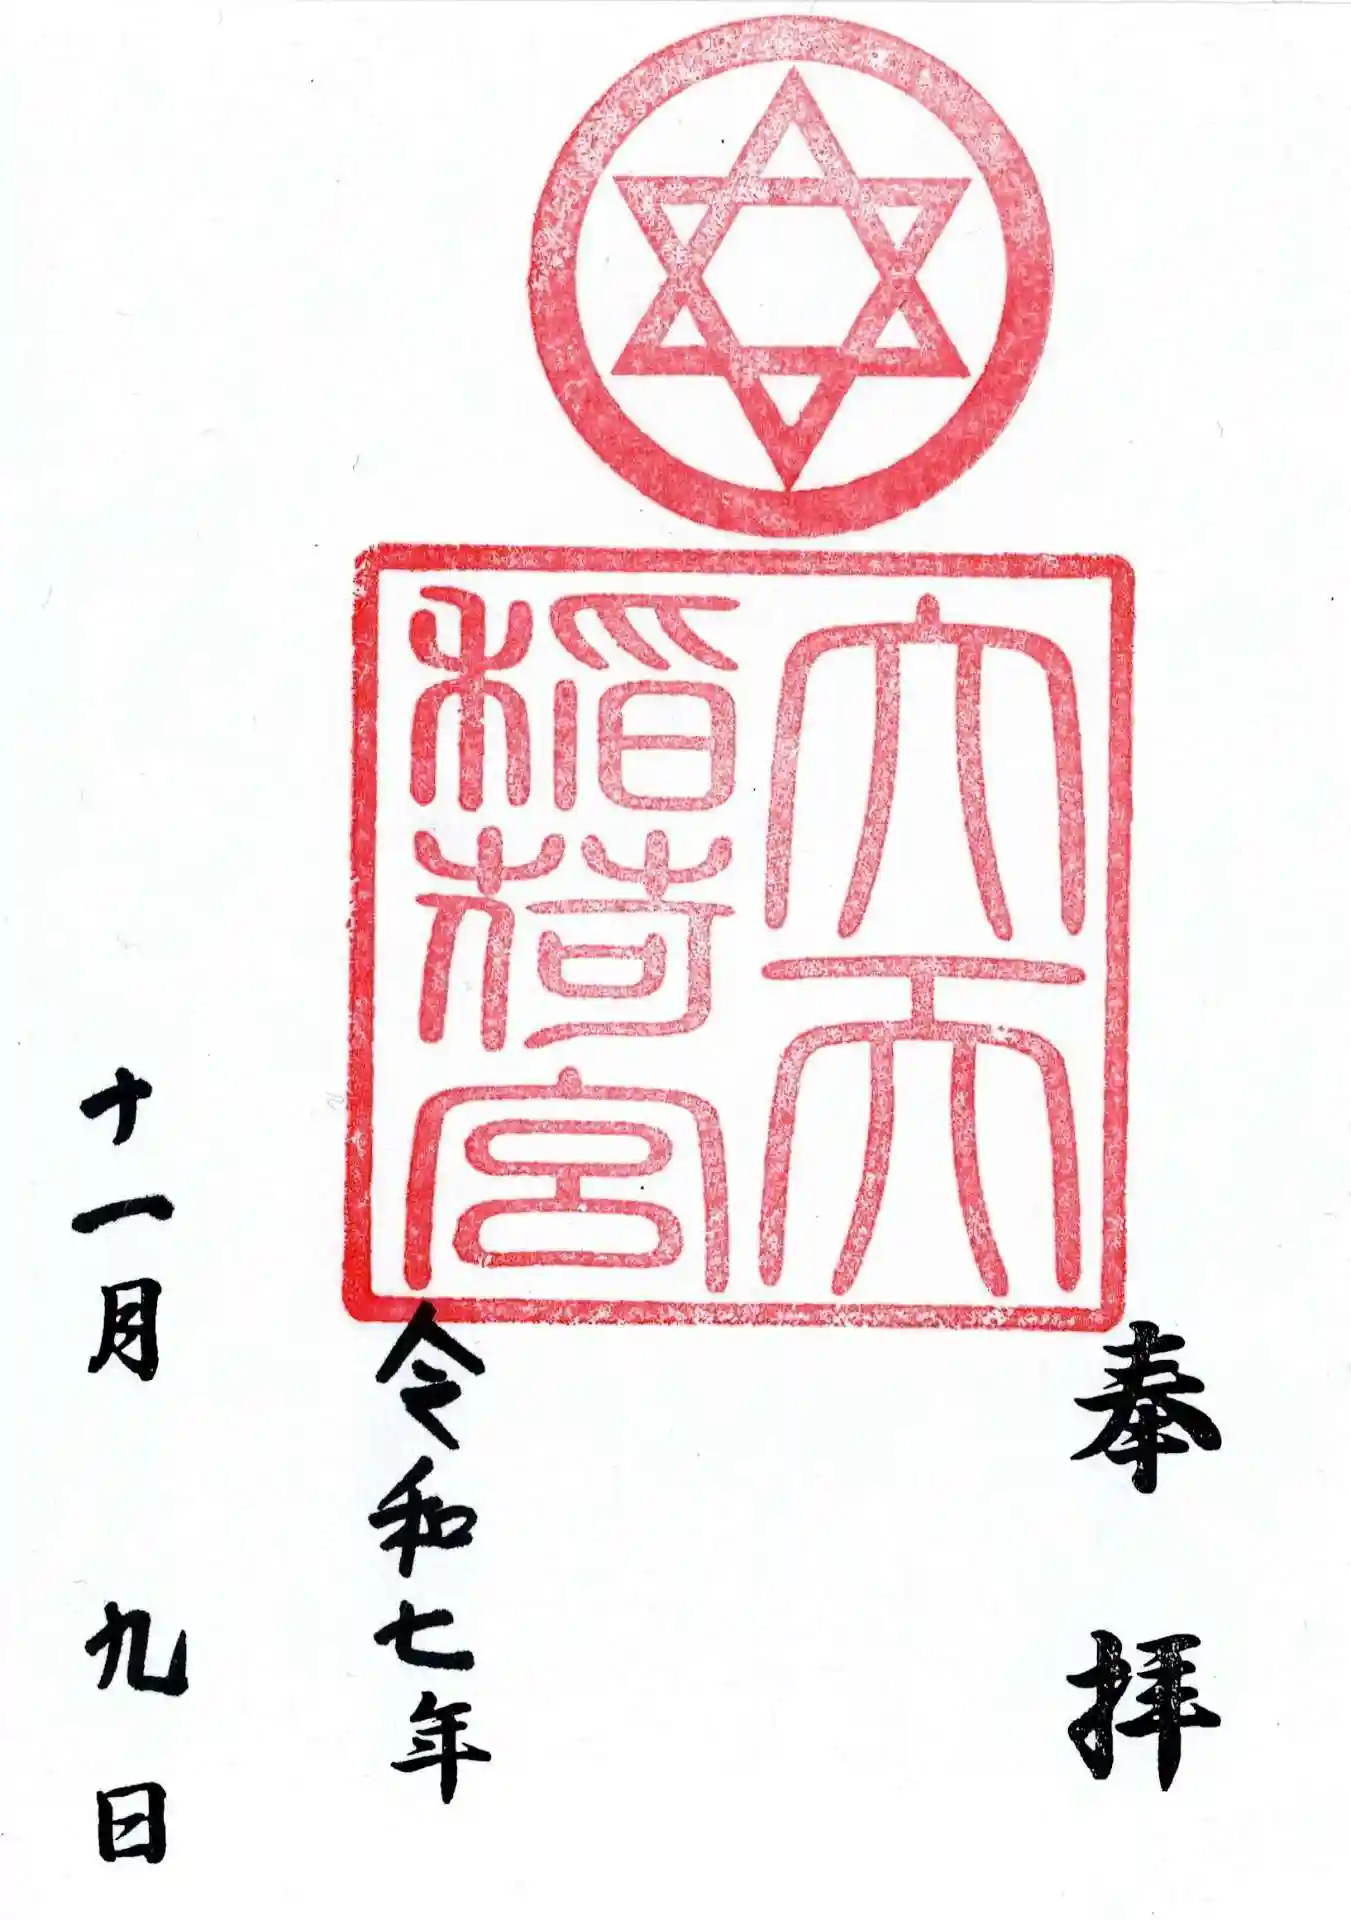 奉拝
大天
稲荷宮
令和七年
十一月九日